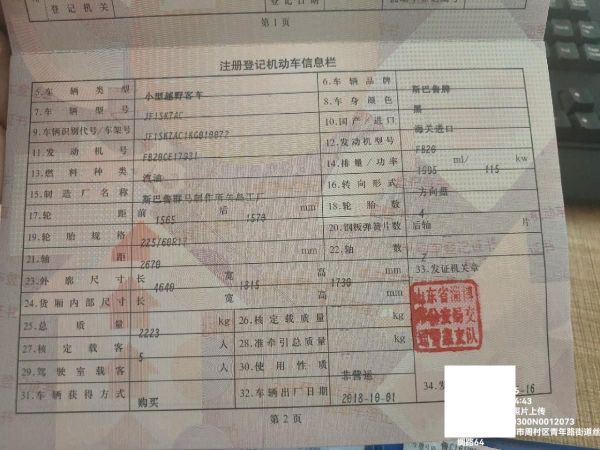 登记机关
登记日期
第1页
注册登记机动车信息栏
5.车辆类型 小型越野客车 6.车辆品牌 斯巴鲁牌
7.车辆型号 JF1SK7AC 8.车身颜色 黑
9.车辆识别代号/车架号 10.国产/进口 海关进口
11.发动机号 12.发动机型号 FB20
13.燃料种类 汽油 14.排量/功率 1995 ml/ 115 kw
15.制造厂名称 16.转向形式 方向盘
17.轮距 前 1565 后 1570 mm 18.轮胎数 4
19.轮胎规格 225/60R17 20.钢板弹簧片数 后轴 片
21.轴距 2670 mm 22.轴数 2
23.外廓尺寸 长 4640 宽 1815 高 1730 mm 33.发证机关章
24.货厢内部尺寸 长 宽 高 mm
25.总质量 2223 kg 26.核定载质量 kg
27.核定载客 5 人 28.准牵引总质量 kg
29.驾驶室载客 人 30.使用性质 非营运
31.车辆获得方式 购买 32.车辆出厂日期 2018-10-01 34.发 -16
第2页
4:43
照片上传
0300N0012073
市周村区青年路街道丝
绸路64